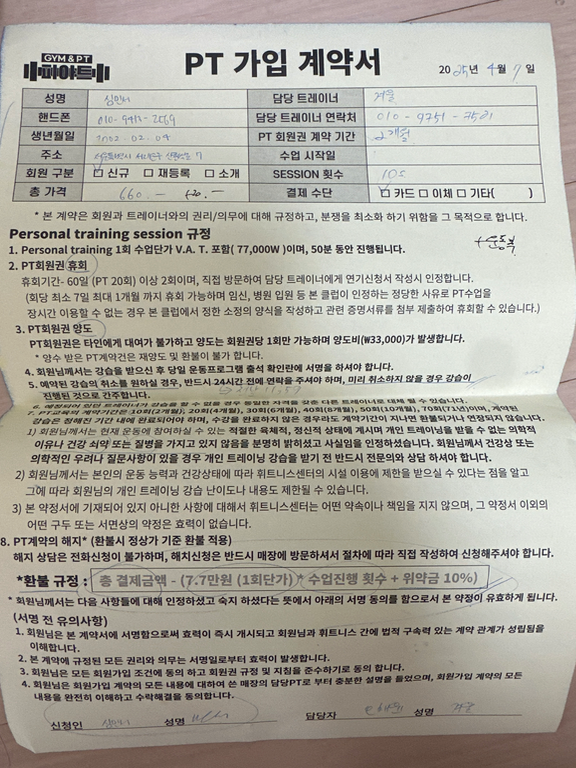 GYM & PT
피아트
PT 가입 계약서
2025년 4월 7일
성명
담당 트레이너 겨울
핸드폰 담당 트레이너 연락처
생년월일 2002.02.04 PT 회원권 계약 기간 2개월
주소 수업 시작일
회원 구분 □ 신규 □ 재등록 □ 소개 SESSION 횟수 10s
총 가격 660.- 결제 수단 □ 카드 □ 이체 □ 기타( )
* 본 계약은 회원과 트레이너와의 권리/의무에 대해 규정하고, 분쟁을 최소화 하기 위함을 그 목적으로 합니다.
Personal training session 규정
+운동복
1. Personal training 1회 수업단가 V.A. T. 포함( 77,000W )이며, 50분 동안 진행됩니다.
2. PT회원권 휴회
휴회기간- 60일 (PT 20회) 이상 2회이며, 직접 방문하여 담당 트레이너에게 연기신청서 작성시 인정합니다.
(회당 최소 7일 최대 1개월 까지 휴회 가능하며 임신, 병원 입원 등 본 클럽이 인정하는 정당한 사유로 PT수업을
장시간 이용할 수 없는 경우 본 클럽에서 정한 소정의 양식을 작성하고 관련 증명서류를 첨부 제출하여 휴회할 수 있습니다.)
3. PT회원권 양도
PT회원은 타인에게 대여가 불가하고 양도는 회원권당 1회만 가능하며 양도비(₩33,000)가 발생합니다.
* 양수 받은 PT계약건은 재양도 및 환불이 불가 합니다.
4. 회원님께서는 강습을 받으신 후 당일 운동프로그램 출석 확인란에 서명을 하셔야 합니다.
5. 예약된 강습의 취소를 원하실 경우, 반드시 24시간 전에 연락을 주셔야 하며, 미리 취소하지 않을 경우 강습이
진행된 것으로 간주합니다.
6. 예정되어 있던 트레이너가 강습을 할 수 없을 경우 동일한 자격을 갖춘 다른 트레이너로 대체 될 수 있습니다.
7. PT교육의 계약기간은 10회(2개월), 20회(4개월), 30회(6개월), 40회(8개월), 50회(10개월), 70회(7년)이며, 계약된
강습은 정해진 기간 내에 완료되어야 하며, 수강을 완료하지 않은 경우라도 계약기간이 지나면 환불되거나 연장되지 않습니다.
1) 회원님께서는 현재 운동에 참여하실 수 있는 적절한 육체적, 정신적 상태에 계시며 개인 트레이닝을 받을 수 없는 의학적
이유나 건강 쇠약 또는 질병을 가지고 있지 않음을 분명히 밝히셨고 사실임을 인정하셨습니다. 회원님께서 건강상 또는
의학적인 우려나 질문사항이 있을 경우 개인 트레이닝 강습을 받기 전 반드시 전문의와 상담 하셔야 합니다.
2) 회원님께서는 본인의 운동 능력과 건강상태에 따라 휘트니스센터의 시설 이용에 제한을 받으실 수 있다는 점을 알고
그에 따라 회원님의 개인 트레이닝 강습 난이도나 내용도 제한될 수 있습니다.
3) 본 약정서에 기재되어 있지 아니한 사항에 대해서 휘트니스센터는 어떤 약속이나 책임을 지지 않으며, 그 약정서 이외의
어떤 구두 또는 서면상의 약정은 효력이 없습니다.
8. PT계약의 해지* (환불시 정상가 기준 환불 적용)
해지 상담은 전화신청이 불가하며, 해지신청은 반드시 매장에 방문하셔서 절차에 따라 직접 작성하여 신청해주셔야 합니다.
*환불 규정 : 총 결제금액 - (7.7만원 (1회단가)* 수업진행 횟수 + 위약금 10%)
* 회원님께서는 다음 사항들에 대해 인정하셨고 숙지 하셨다는 뜻에서 아래의 서명 동의를 함으로서 본 약정이 유효하게 됩니다.
(서명 전 유의사항)
1. 회원님께서는 본 계약서에 서명함으로써 효력이 즉시 개시되고 회원님과 휘트니스 간에 법적 구속력 있는 계약 관계가 성립됨을
이해합니다.
2. 본 계약에 규정된 모든 권리와 의무는 서명일로부터 효력이 발생합니다.
3. 회원님은 모든 회원가입 조건에 동의 하고 회원권 규정 및 지침을 준수하기로 동의 합니다.
4. 회원님은 회원가입 계약의 모든 내용에 대하여 쓴 매장의 담당PT로 부터 충분한 설명을 들었으며, 회원가입 계약의 모든
내용을 완전히 이해하고 수락해결을 동의합니다.
신청인 성명 담당자 성명